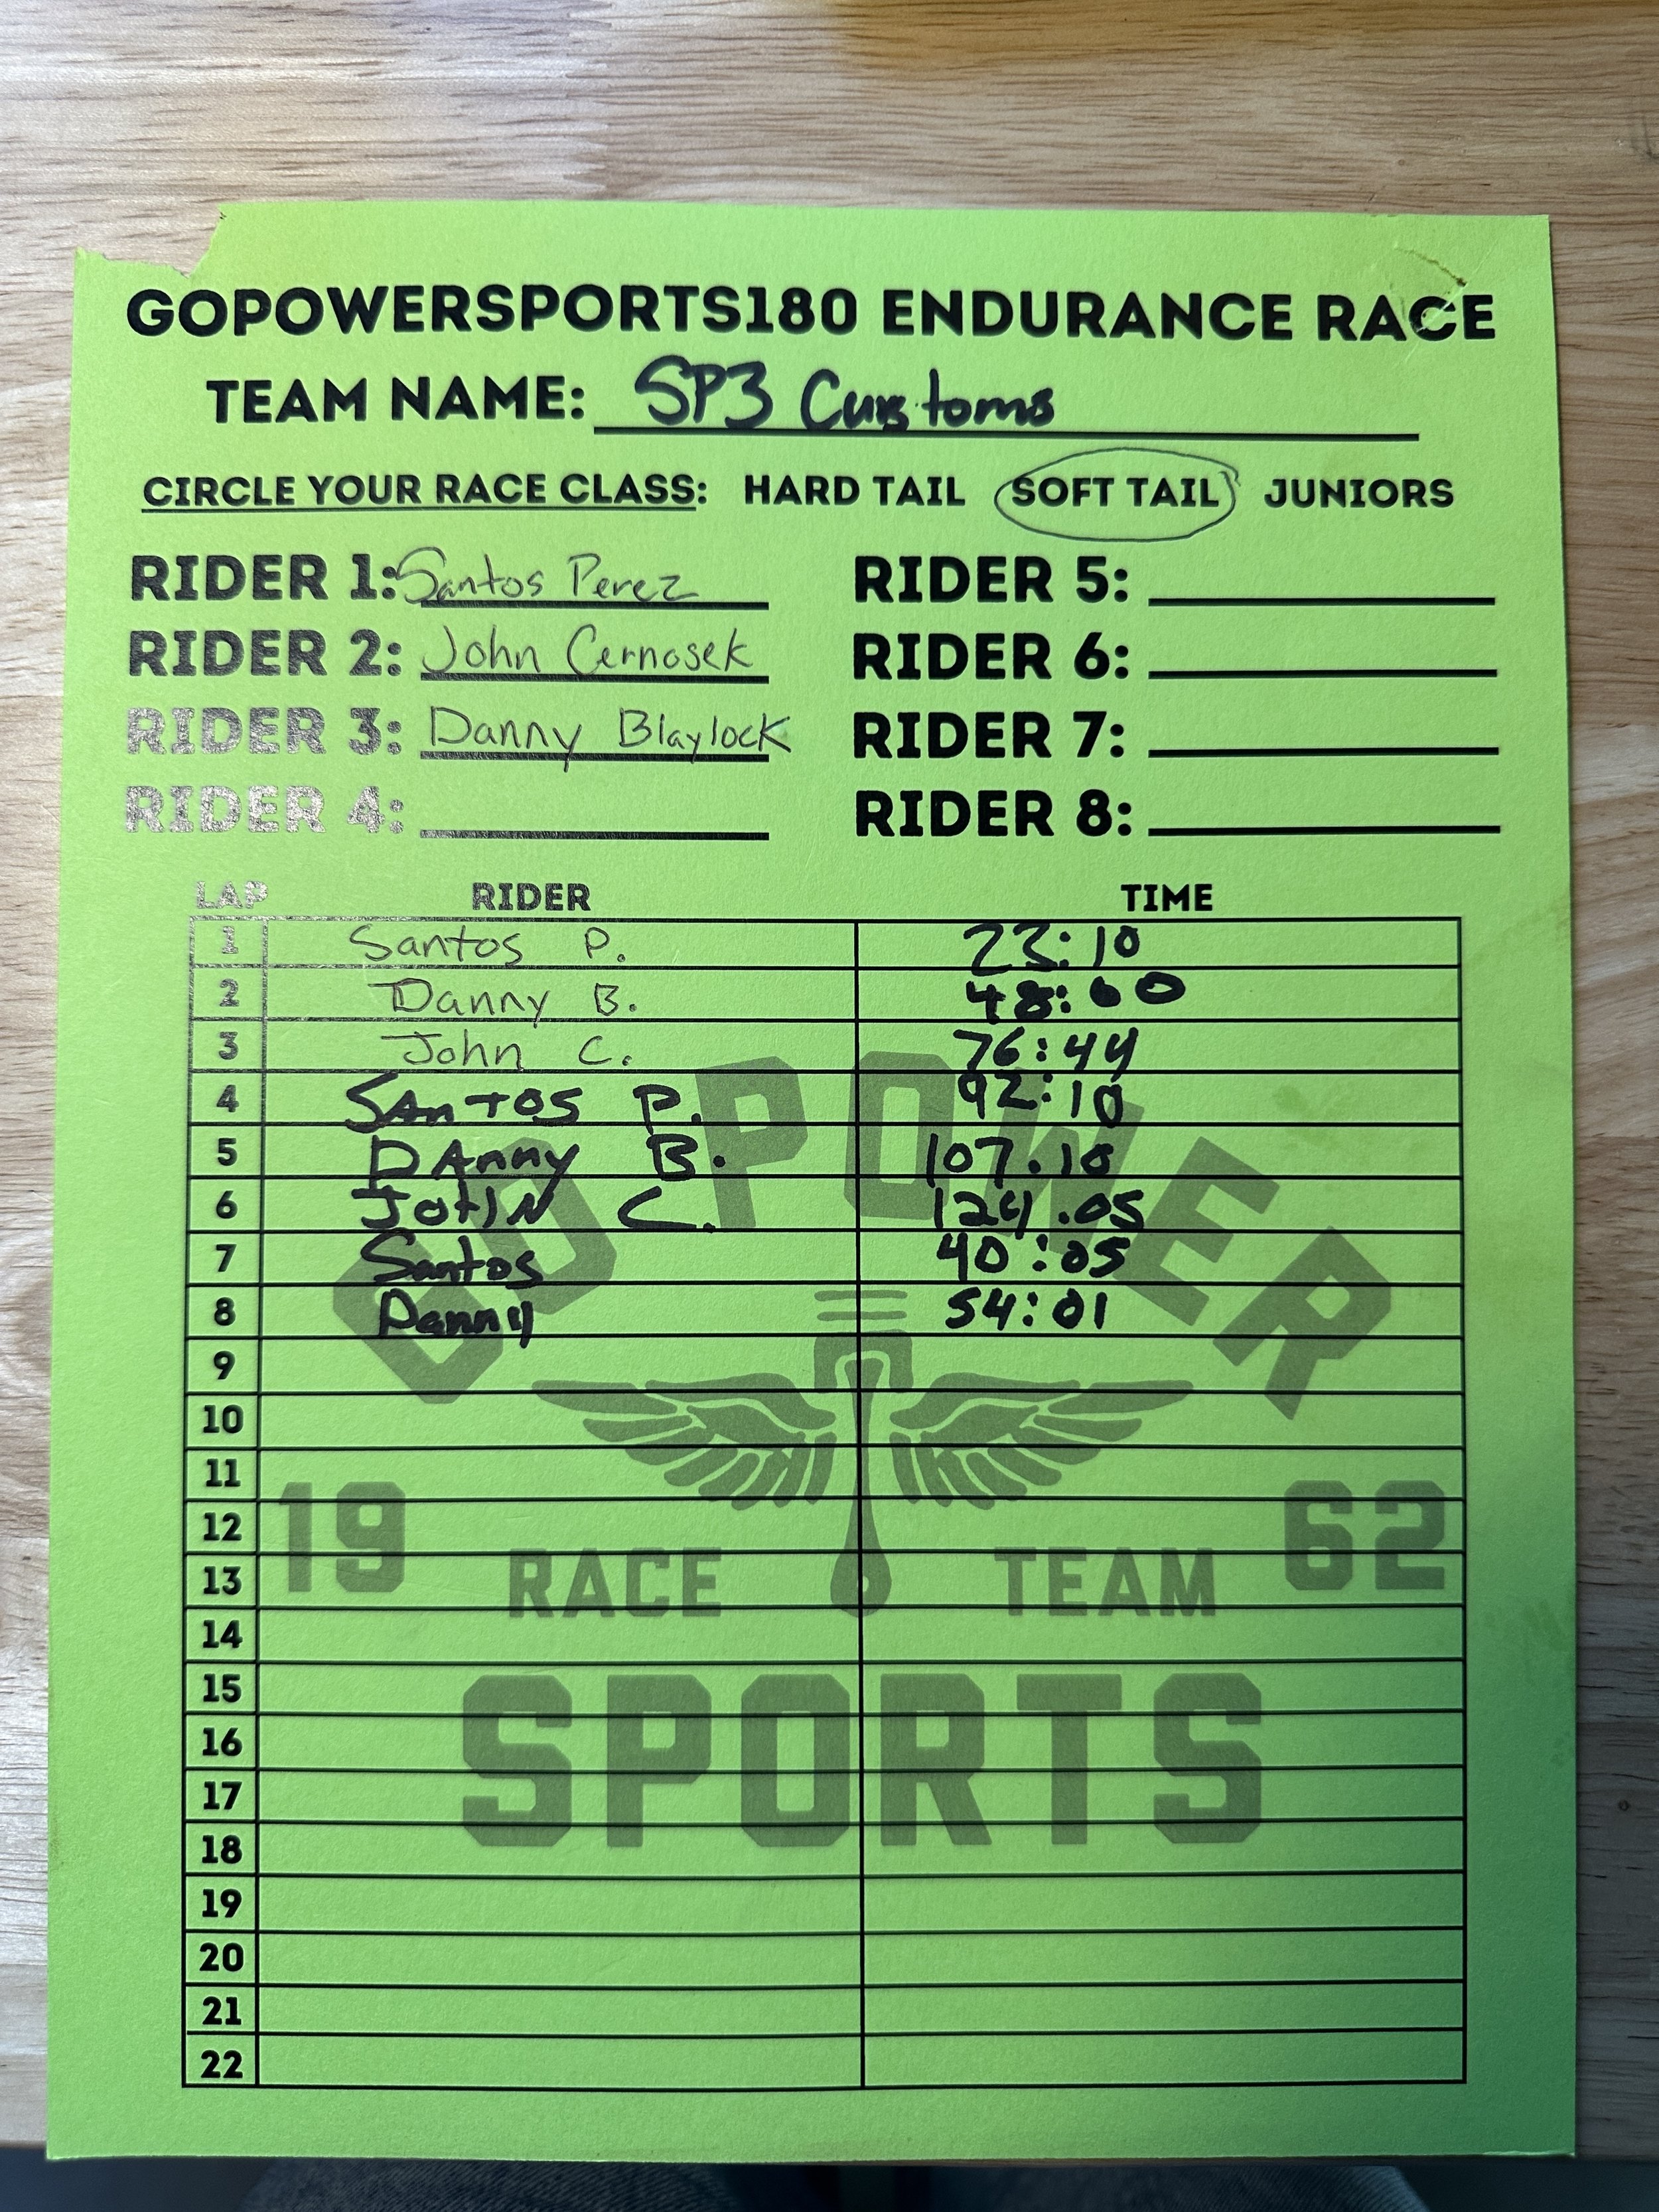 GOPOWERSPORTS180 ENDURANCE RACE
TEAM NAME: SP3 Customs
CIRCLE YOUR RACE CLASS: HARD TAIL SOFT TAIL JUNIORS
RIDER 1: Santos Perez RIDER 5:
RIDER 2: John Cernosek RIDER 6:
RIDER 3: Danny Blaylock RIDER 7:
RIDER 4: RIDER 8:
LAP RIDER TIME
1 Santos P. 23:10
2 Danny B. 48:00
3 John C. 76:44
4 SAnTOS P. 92:10
5 DAnny B. 107.10
6 JOHN C. 124.05
7 Santos 40:05
8 Danny 54:01
9
10
11
12
13
14
15
16
17
18
19
20
21
22
GO POWER
19 62
RACE TEAM
SPORTS